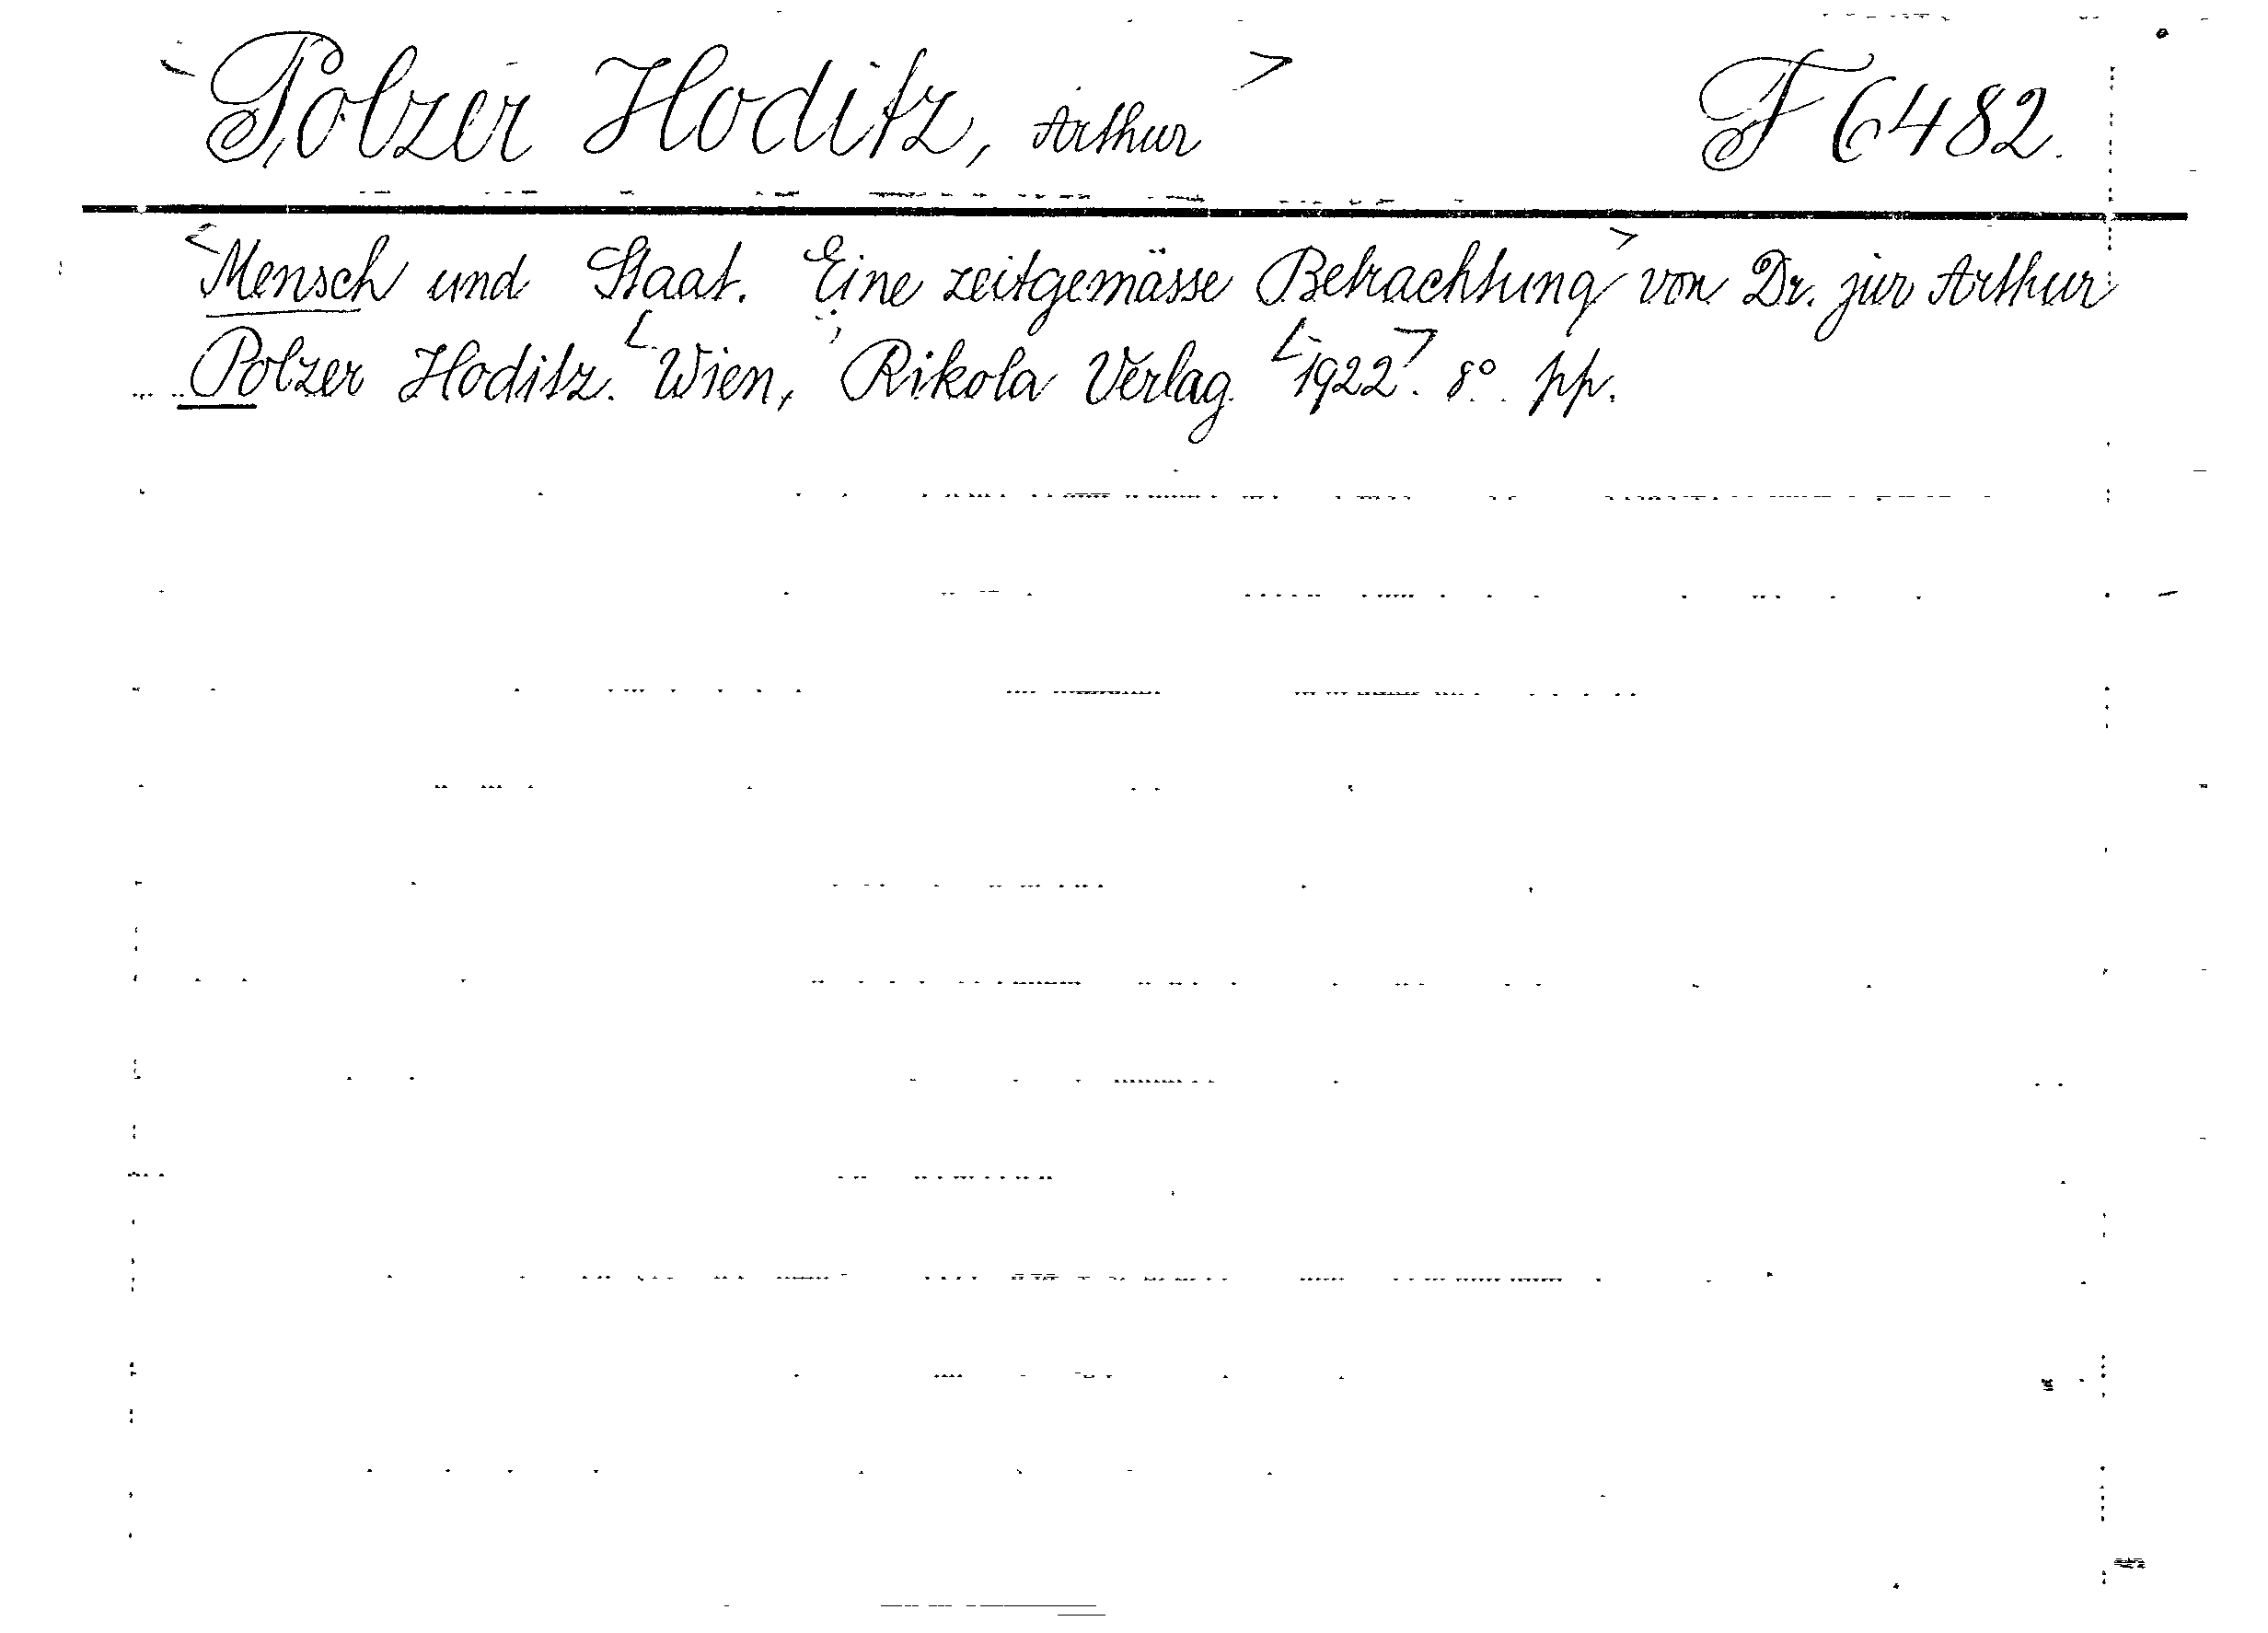 Polzer Hoditz, Arthur F 6482.
Mensch und Staat. Eine zeitgemässe Betrachtung von Dr. jur Arthur
Polzer Hoditz. Wien, Rikola Verlag. 1922. 8°. pp.